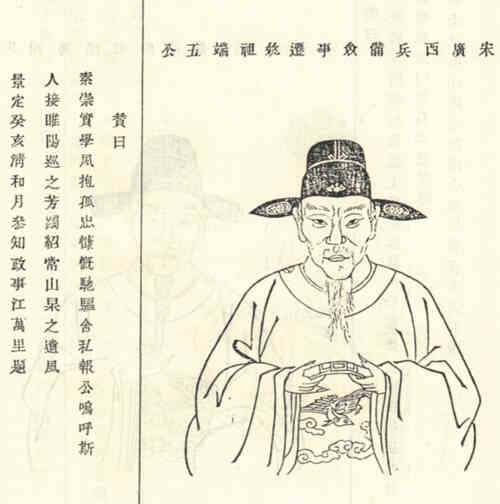 宋廣西兵備僉事遷祖端五公
贊曰
素崇實學夙抱孤忠慷慨馳驅舍私報公嗚呼斯
人接睢陽巡之芳躅紹常山杲之遺風
景定癸亥清和月參知政事江萬里題